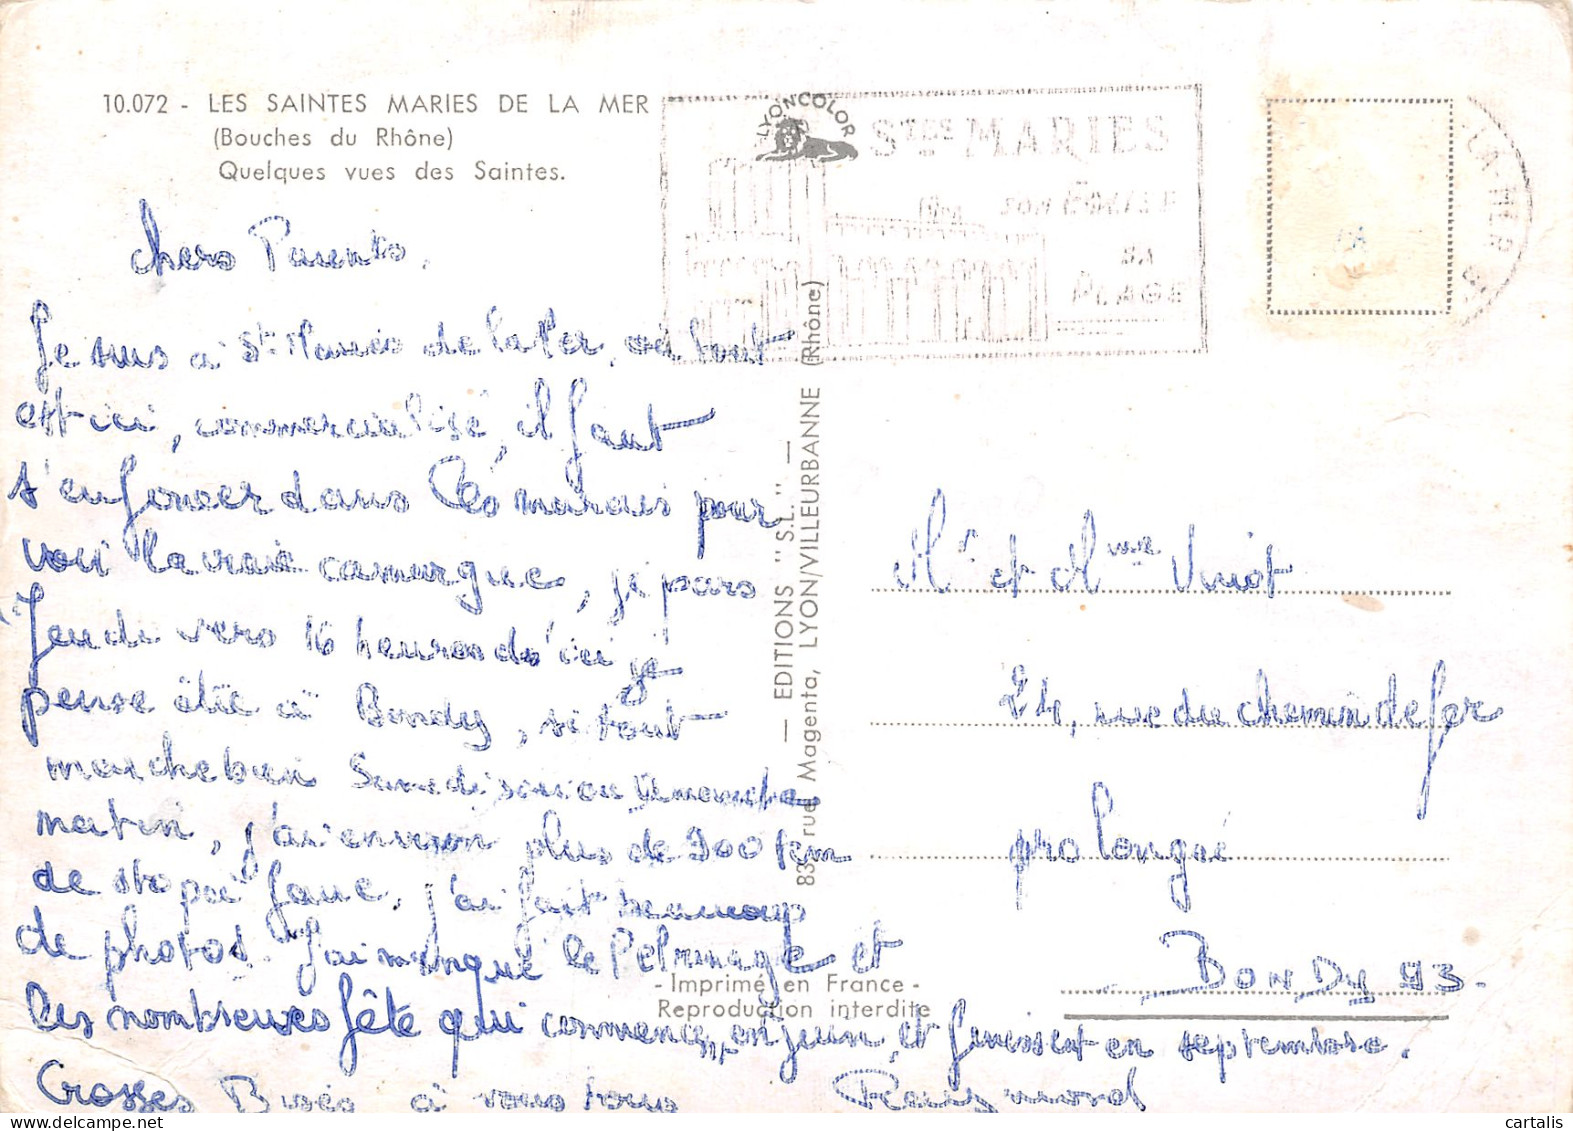 10.072 - LES SAINTES MARIES DE LA MER
(Bouches du Rhône)
Quelques vues des Saintes.
LYONCOLOR
STES MARIES
SON
SA
PLAGE
LA-MER
chers Parents,
Je suis à Stes Maries de la Mer, où tout
est ici, commercialisé, il faut
s'enfoncer dans les marais pour
voir la vraie camargue, je pars
Jeudi vers 16 heures d'ici je
pense être à Bondy, si tout
marche bien Samedi soir ou Dimanche
matin, j'ai environ plus de 900 km
de stop à faire. j'ai fait beaucoup
de photos. J'ai manqué le Pelerinage et
les nombreuses fête qui commence, en juin, et finissent en septembre.
Grosses Bises à vous tous
Raymond
— EDITIONS "S.L." —
83, rue Magenta, LYON/VILLEURBANNE (Rhône)
- Imprimé en France -
Reproduction interdite
Mr et Mme Viriot
24, rue du chemin de fer
prolongé
BONDY 93.
cartalis.com